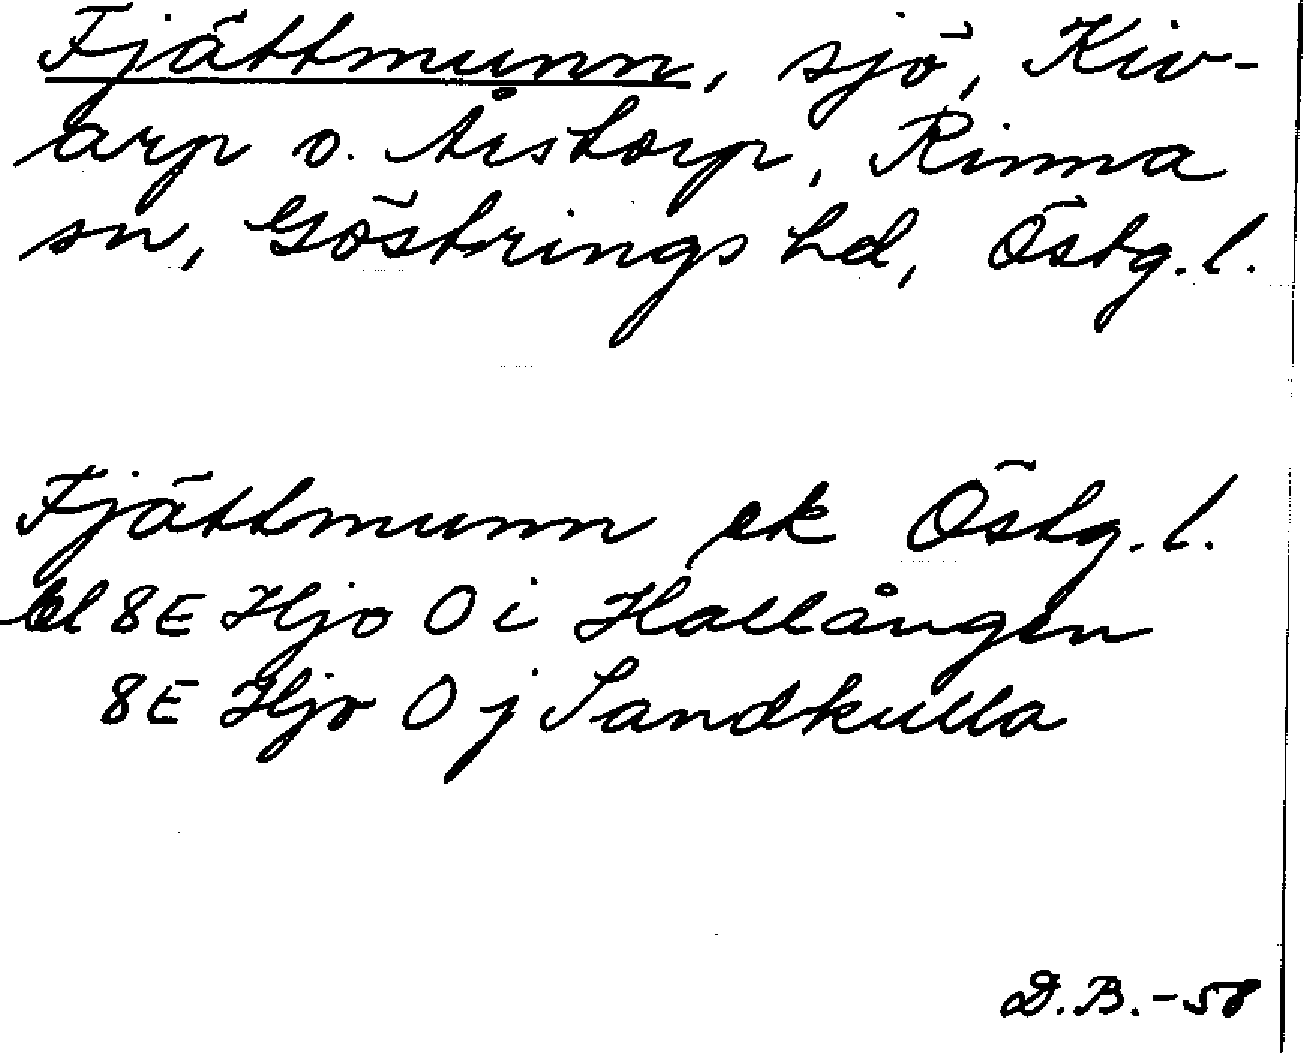 Fjättmunn, sjö, Kiv-
arp o. Åistorp, Rinna
sn, Göstrings hd, Östg. l.
Fjättmunn ek Östg. l.
bl 8E Hjo 0 i Hallången
8E Hjo 0 j Sandkulla
D.B. - 58